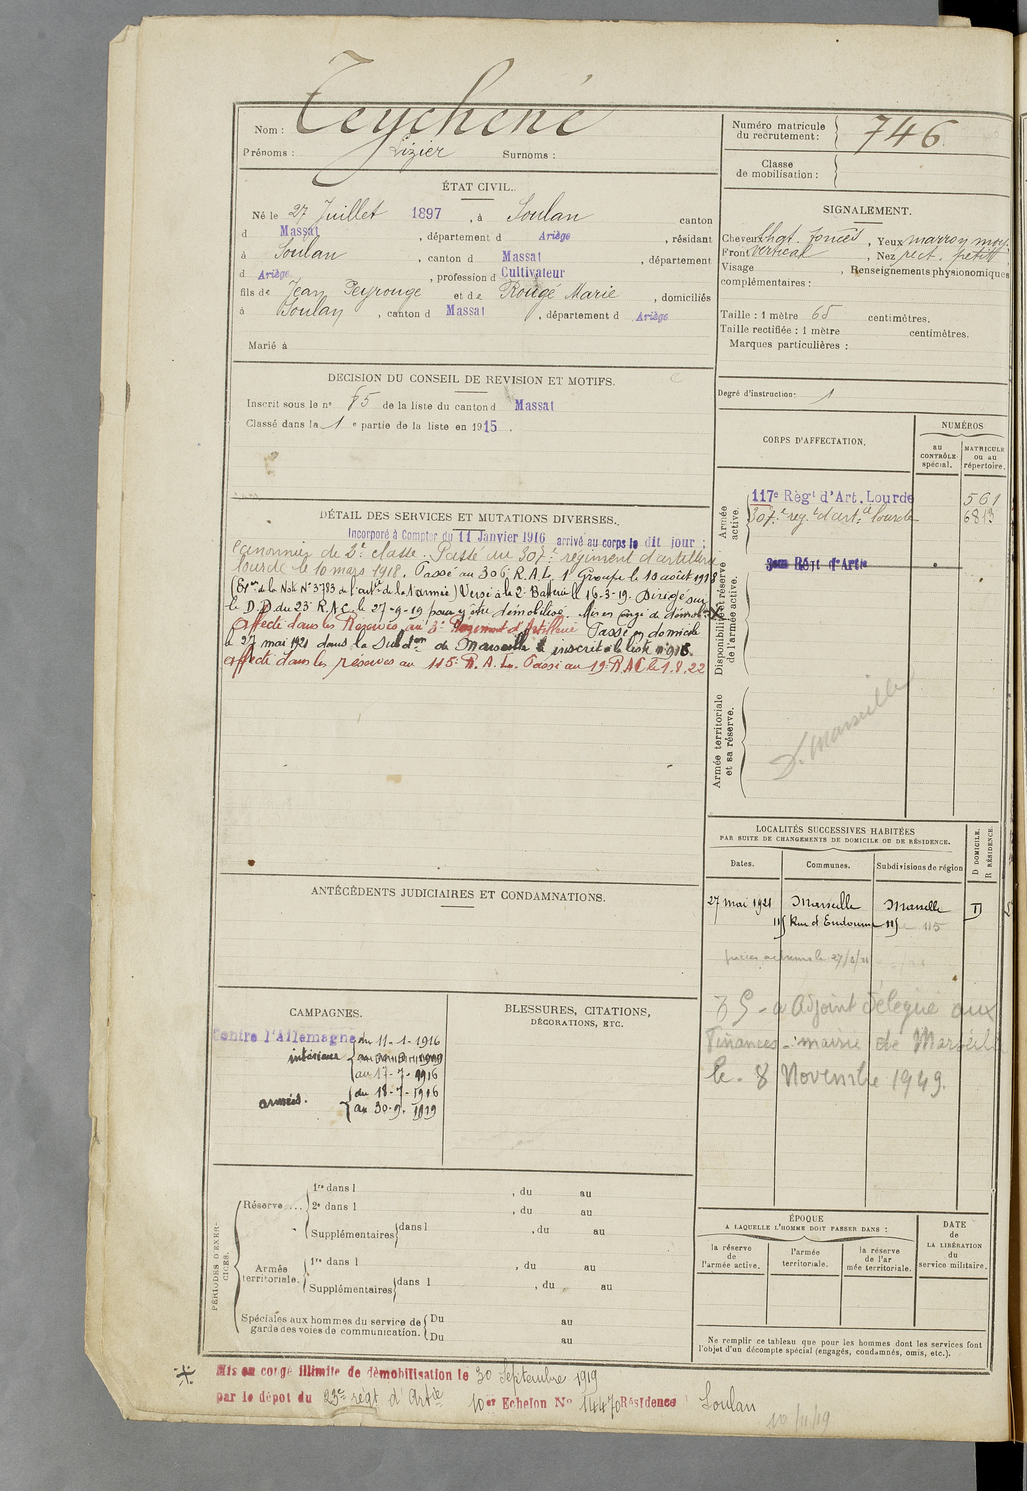 Nom : Teychené
Prénoms : Lizier Surnoms :
Numéro matricule du recrutement : 746
Classe de mobilisation :
ÉTAT CIVIL.
Né le 27 Juillet 1897 , à Soulan canton
d Massat , département d Ariège , résidant
à Soulan , canton d Massat , département
d Ariège , profession d Cultivateur
fils de Jean Peyrouge et de Rougé Marie , domiciliés
à Soulan , canton d Massat , département d Ariège
Marié à
SIGNALEMENT.
Cheveux Chat. foncés , Yeux marron moy.
Front vertical , Nez rect. petit
Visage , Renseignements physionomiques
complémentaires :
Taille : 1 mètre 65 centimètres.
Taille rectifiée : 1 mètre centimètres.
Marques particulières :
Degré d'instruction : 1
DECISION DU CONSEIL DE REVISION ET MOTIFS.
Inscrit sous le n° 75 de la liste du canton d Massat
Classé dans la 1 e partie de la liste en 1915 .
CORPS D'AFFECTATION.
NUMÉROS
au CONTRÔLE spécial.
MATRICULE ou au répertoire.
Armée active.
117e Règt d'Art. Lourde 561
307e reg.t d'art.ie lourde 6813
Disponibilité et réserve de l'armée active.
3eme Régt d'Artie
Armée territoriale et sa réserve.
D. Marseille
DÉTAIL DES SERVICES ET MUTATIONS DIVERSES.
Incorporé à Compter du 11 Janvier 1916 arrivé au corps le dit jour ;
Canonnier de 2e classe. Passé au 307e régiment d'artillerie
lourde le 10 mars 1918. Passé au 306e R.A.L. 1er Groupe le 10 août 1918
(Eon de la Note N° 3783 de l'artie de la 1 armée) Versé à la 2e Batterie le 16-3-19. Dirigé sur
le D.D du 23e R.A.C. le 27-9-19 pour y être démobilisé. Mis en congé de démob. X
Affecté dans les Réserves au 3e Régiment d'Artillerie Passé en domicile
le 27 mai 1921 dans la Subdon de Marseille inscrit à la liste n° 918.
affecté dans les réserves au 115e R.A.L. Passé au 19e R.A.C le 1.8.22
LOCALITÉS SUCCESSIVES HABITÉES
PAR SUITE DE CHANGEMENTS DE DOMICILE OU DE RÉSIDENCE.
Dates. Communes. Subdivisions de région
D DOMICILE. R RÉSIDENCE.
27 mai 1921 Marseille Marseille D
115 Rue d'Endoume 115 115
27/5/21
ANTÉCÉDENTS JUDICIAIRES ET CONDAMNATIONS.
a Adjoint délégué aux
Finances - mairie de Marseille
le. 8 Novembre 1949.
CAMPAGNES.
Contre l'Allemagne du 11-1-1916
intérieur
au 17-7-1916
armées. du 18-7-1916
au 30-9-1919
BLESSURES, CITATIONS,
DÉCORATIONS, ETC.
PÉRIODES D'EXERCICES.
Réserve ... 1re dans l , du au
2e dans l , du au
Supplémentaires dans l , du au
Armée territoriale. 1re dans l , du au
Supplémentaires dans l , du au
Spéciales aux hommes du service de garde des voies de communication. Du au
Du au
ÉPOQUE
A LAQUELLE L'HOMME DOIT PASSER DANS :
la réserve de l'armée active.
l'armée territoriale.
la réserve de l'armée territoriale.
DATE
de
LA LIBÉRATION
du
service militaire.
Ne remplir ce tableau que pour les hommes dont les services font
l'objet d'un décompte spécial (engagés, condamnés, omis, etc.).
X Mis en congé illimité de démobilisation le 30 Septembre 1919
par le dépôt du 23e régt d'Artie 10er Echelon N° 14470 Résidence Soulan
10/11/19